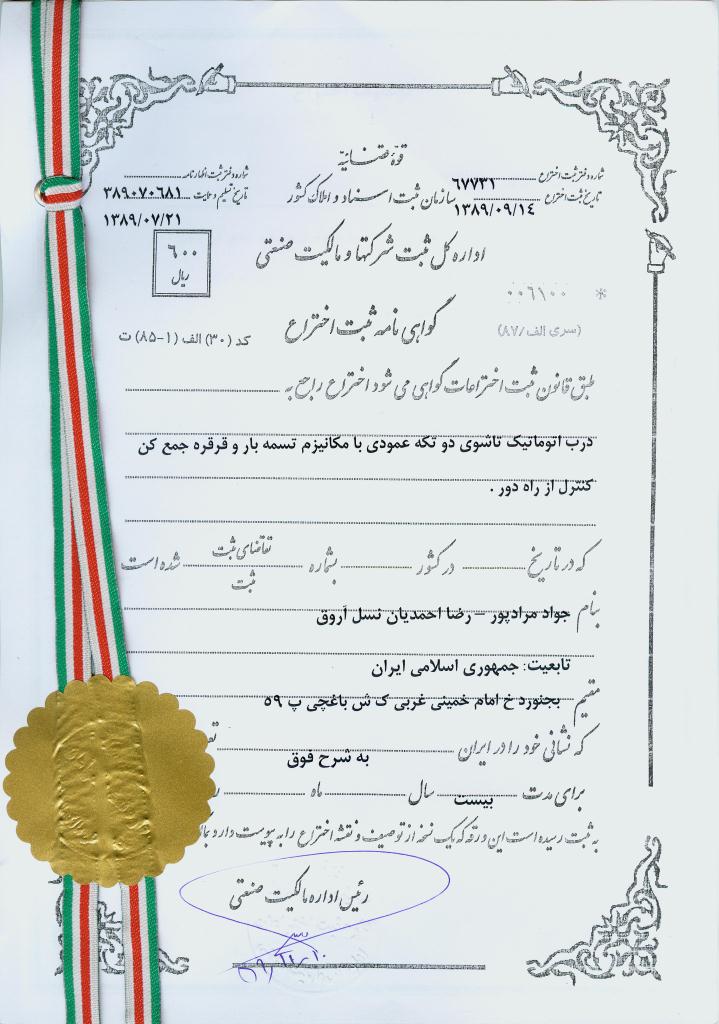 قوهٔ قضائیه
شماره دفتر ثبت اختراع ۶۷۷۳۱
شماره دفتر ثبت اظهارنامه
تاریخ ثبت اختراع ۱۳۸۹/۰۹/۱۴
سازمان ثبت اسناد و املاک کشور
تاریخ تسلیم و حمایت ۳۸۹۰۷۰۶۸۱
۱۳۸۹/۰۷/۲۱
اداره کل ثبت شرکتها و مالکیت صنعتی
۶۰۰
ریال
* ۰۰۶۱۰۰
(سری الف/۸۷)
گواهی نامه ثبت اختراع
کد (۳۰) الف (۱-۸۵) ت
طبق قانون ثبت اختراعات گواهی می شود اختراع راجع به
درب اتوماتیک تاشوی دو تکه عمودی با مکانیزم تسمه بار و قرقره جمع کن
کنترل از راه دور .
که در تاریخ در کشور بشماره تقاضای ثبت شده است
ثبت
بنام جواد مرادپور – رضا احمدیان نسل آروق
تابعیت: جمهوری اسلامی ایران
مقیم بجنورد خ امام خمینی غربی ک ش باغچی پ ۵۹
که نشانی خود را در ایران به شرح فوق
برای مدت بیست سال ماه
به ثبت رسیده است این ورقه که یک نسخه از توصیف و نقشه اختراع را به پیوست دارد
رئیس اداره مالکیت صنعتی